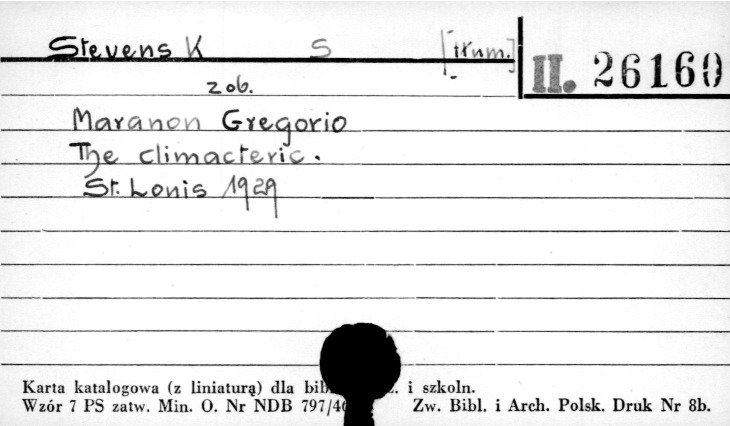 Stevens K S [tłum.]
II. 26160
zob.
Maranon Gregorio
The climacteric.
St. Lonis 1929
Karta katalogowa (z liniaturą) dla bibl. i szkoln.
Wzór 7 PS zatw. Min. O. Nr NDB 797/46 Zw. Bibl. i Arch. Polsk. Druk Nr 8b.